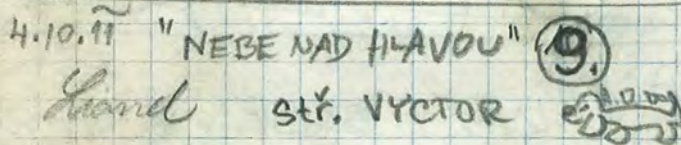 4.10.11 "NEBE NAD HLAVOU" 9.
stř. VYCTOR